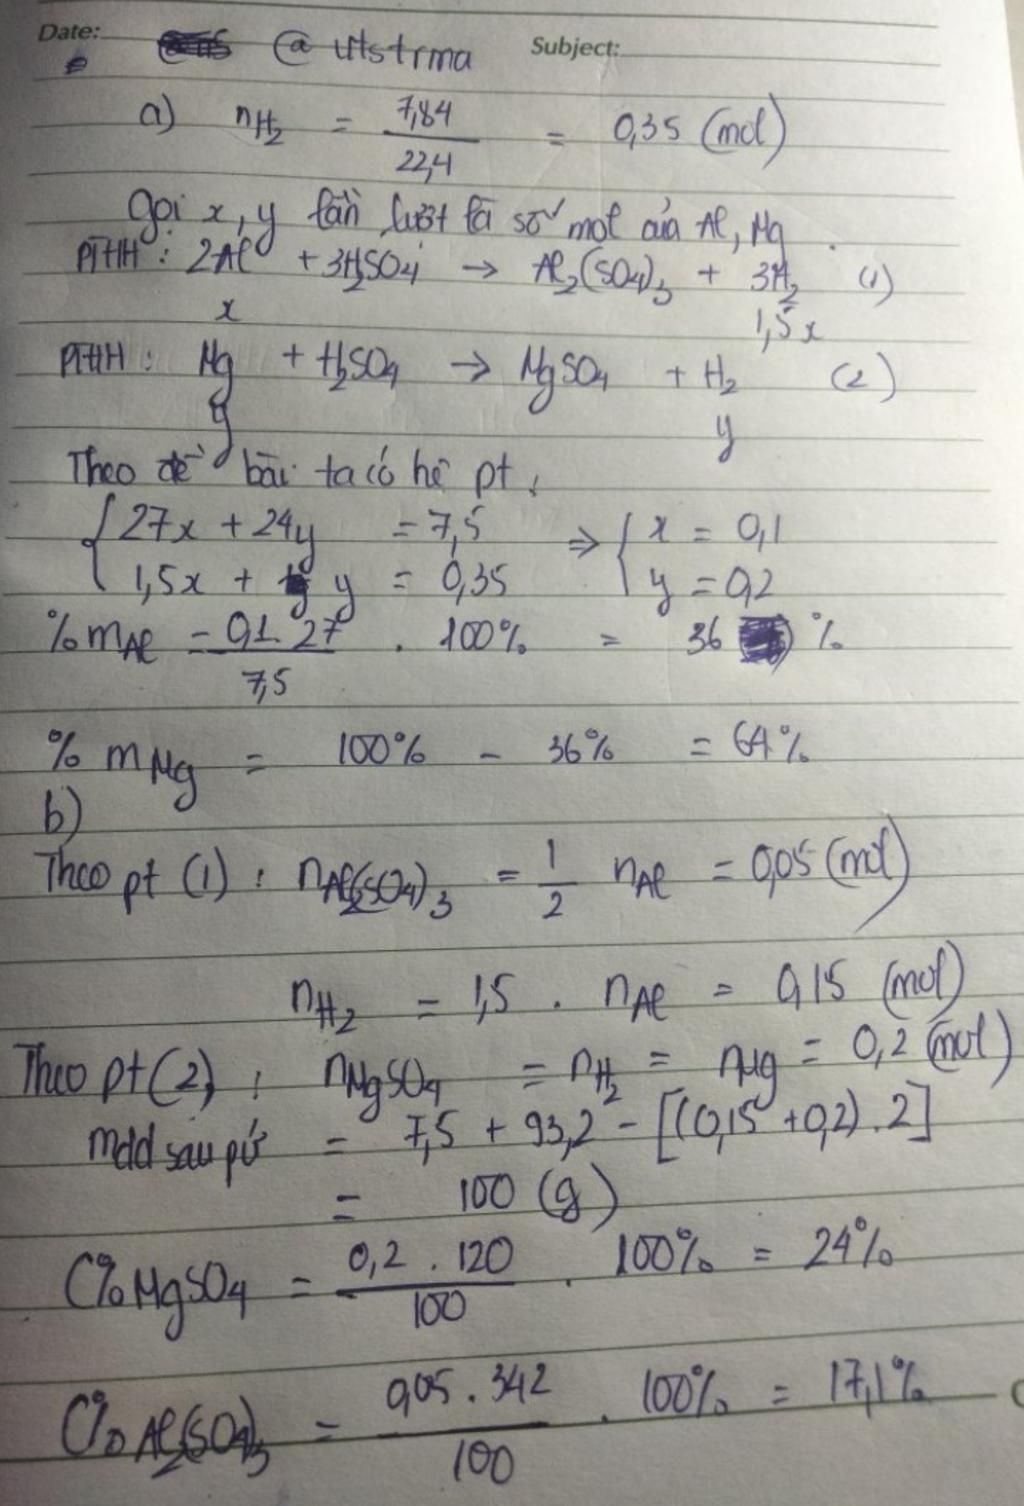 Date: @ utstrma Subject:
a) nH₂ = 7,84/22,4 = 0,35 (mol)
Gọi x, y lần lượt là số mol của Al, Mg.
PTHH: 2Al + 3H₂SO₄ → Al₂(SO₄)₃ + 3H₂ (1)
x 1,5x
PTHH: Mg + H₂SO₄ → MgSO₄ + H₂ (2)
y y
Theo đề bài ta có hệ pt:
{ 27x + 24y = 7,5 ⇒ { x = 0,1
1,5x + y = 0,35 y = 0,2
% mAl = 0,1.27/7,5 . 100% = 36 %
% mMg = 100% - 36% = 64%
b)
Theo pt (1): nAl₂(SO₄)₃ = 1/2 nAl = 0,05 (mol)
nH₂ = 1,5 . nAl = 0,15 (mol)
Theo pt (2): nMgSO₄ = nH₂ = nMg = 0,2 (mol)
mdd sau pứ = 7,5 + 93,2 - [(0,15 + 0,2) . 2]
= 100 (g)
C% MgSO₄ = 0,2 . 120/100 . 100% = 24%
C% Al₂(SO₄)₃ = 0,05 . 342/100 . 100% = 17,1%